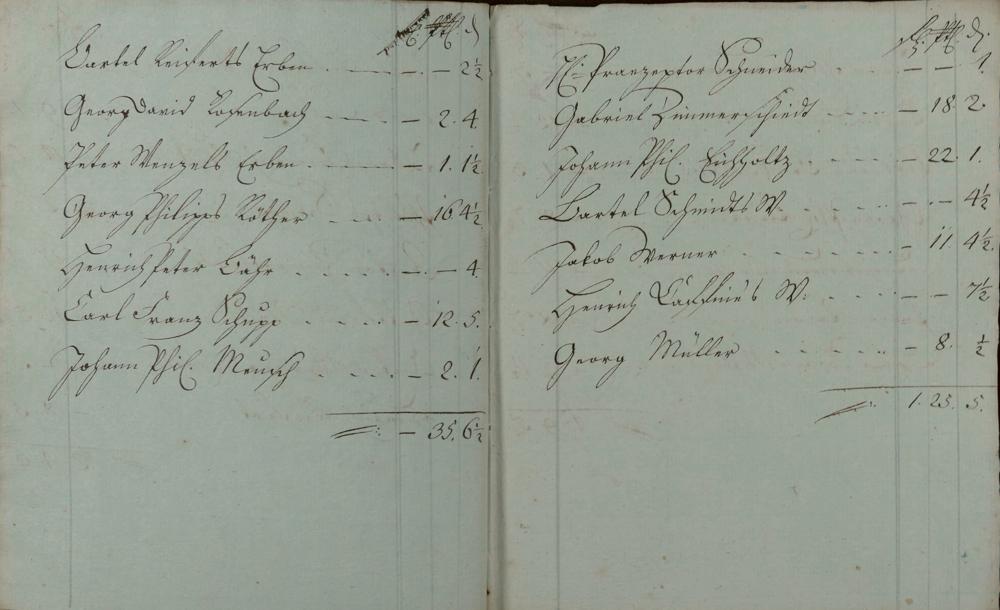 Bartel Reiferts Erben — — 2½
Georg David Rosenbach — 2. 4.
Peter Wenzels Erben — 1. 1½
Georg Philipps Röther — 16. 4½
Henrich Peter Bähr — — 4.
Carl Franz Schupp — 12. 5.
Johann Phil. Meusch — 2. 1.
— 35. 6½
fl. d.
H: Praezeptor Schneider — — 1.
Gabriel Zimmerschiedt — 18. 2.
Johann Phil. Eichholtz — 22. 1.
Bartel Schmidts W. — — 4½
Jakob Werner — 11. 4½
Henrich W. — — 7½
Georg Müller — 8. ½
1. 25. 5.